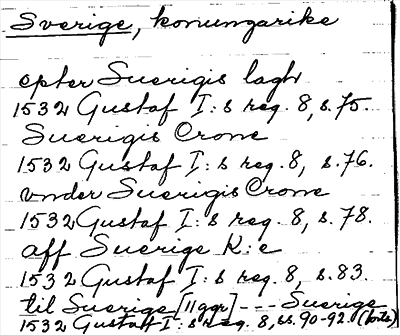 Sverige, konungarike
epter Suerigis lagh
1532 Gustaf I:s reg. 8, s. 75.
Suerigis Crone
1532 Gustaf I:s reg. 8, s. 76.
vnder Suerigis Crone
1532 Gustaf I:s reg. 8, s. 78.
aff Suerige R:e
1532 Gustaf I:s reg. 8, s. 83.
til Suerige [11 ggr] --- Suerige
1532 Gustaf I:s reg. 8, ss. 90-92. (forts.)